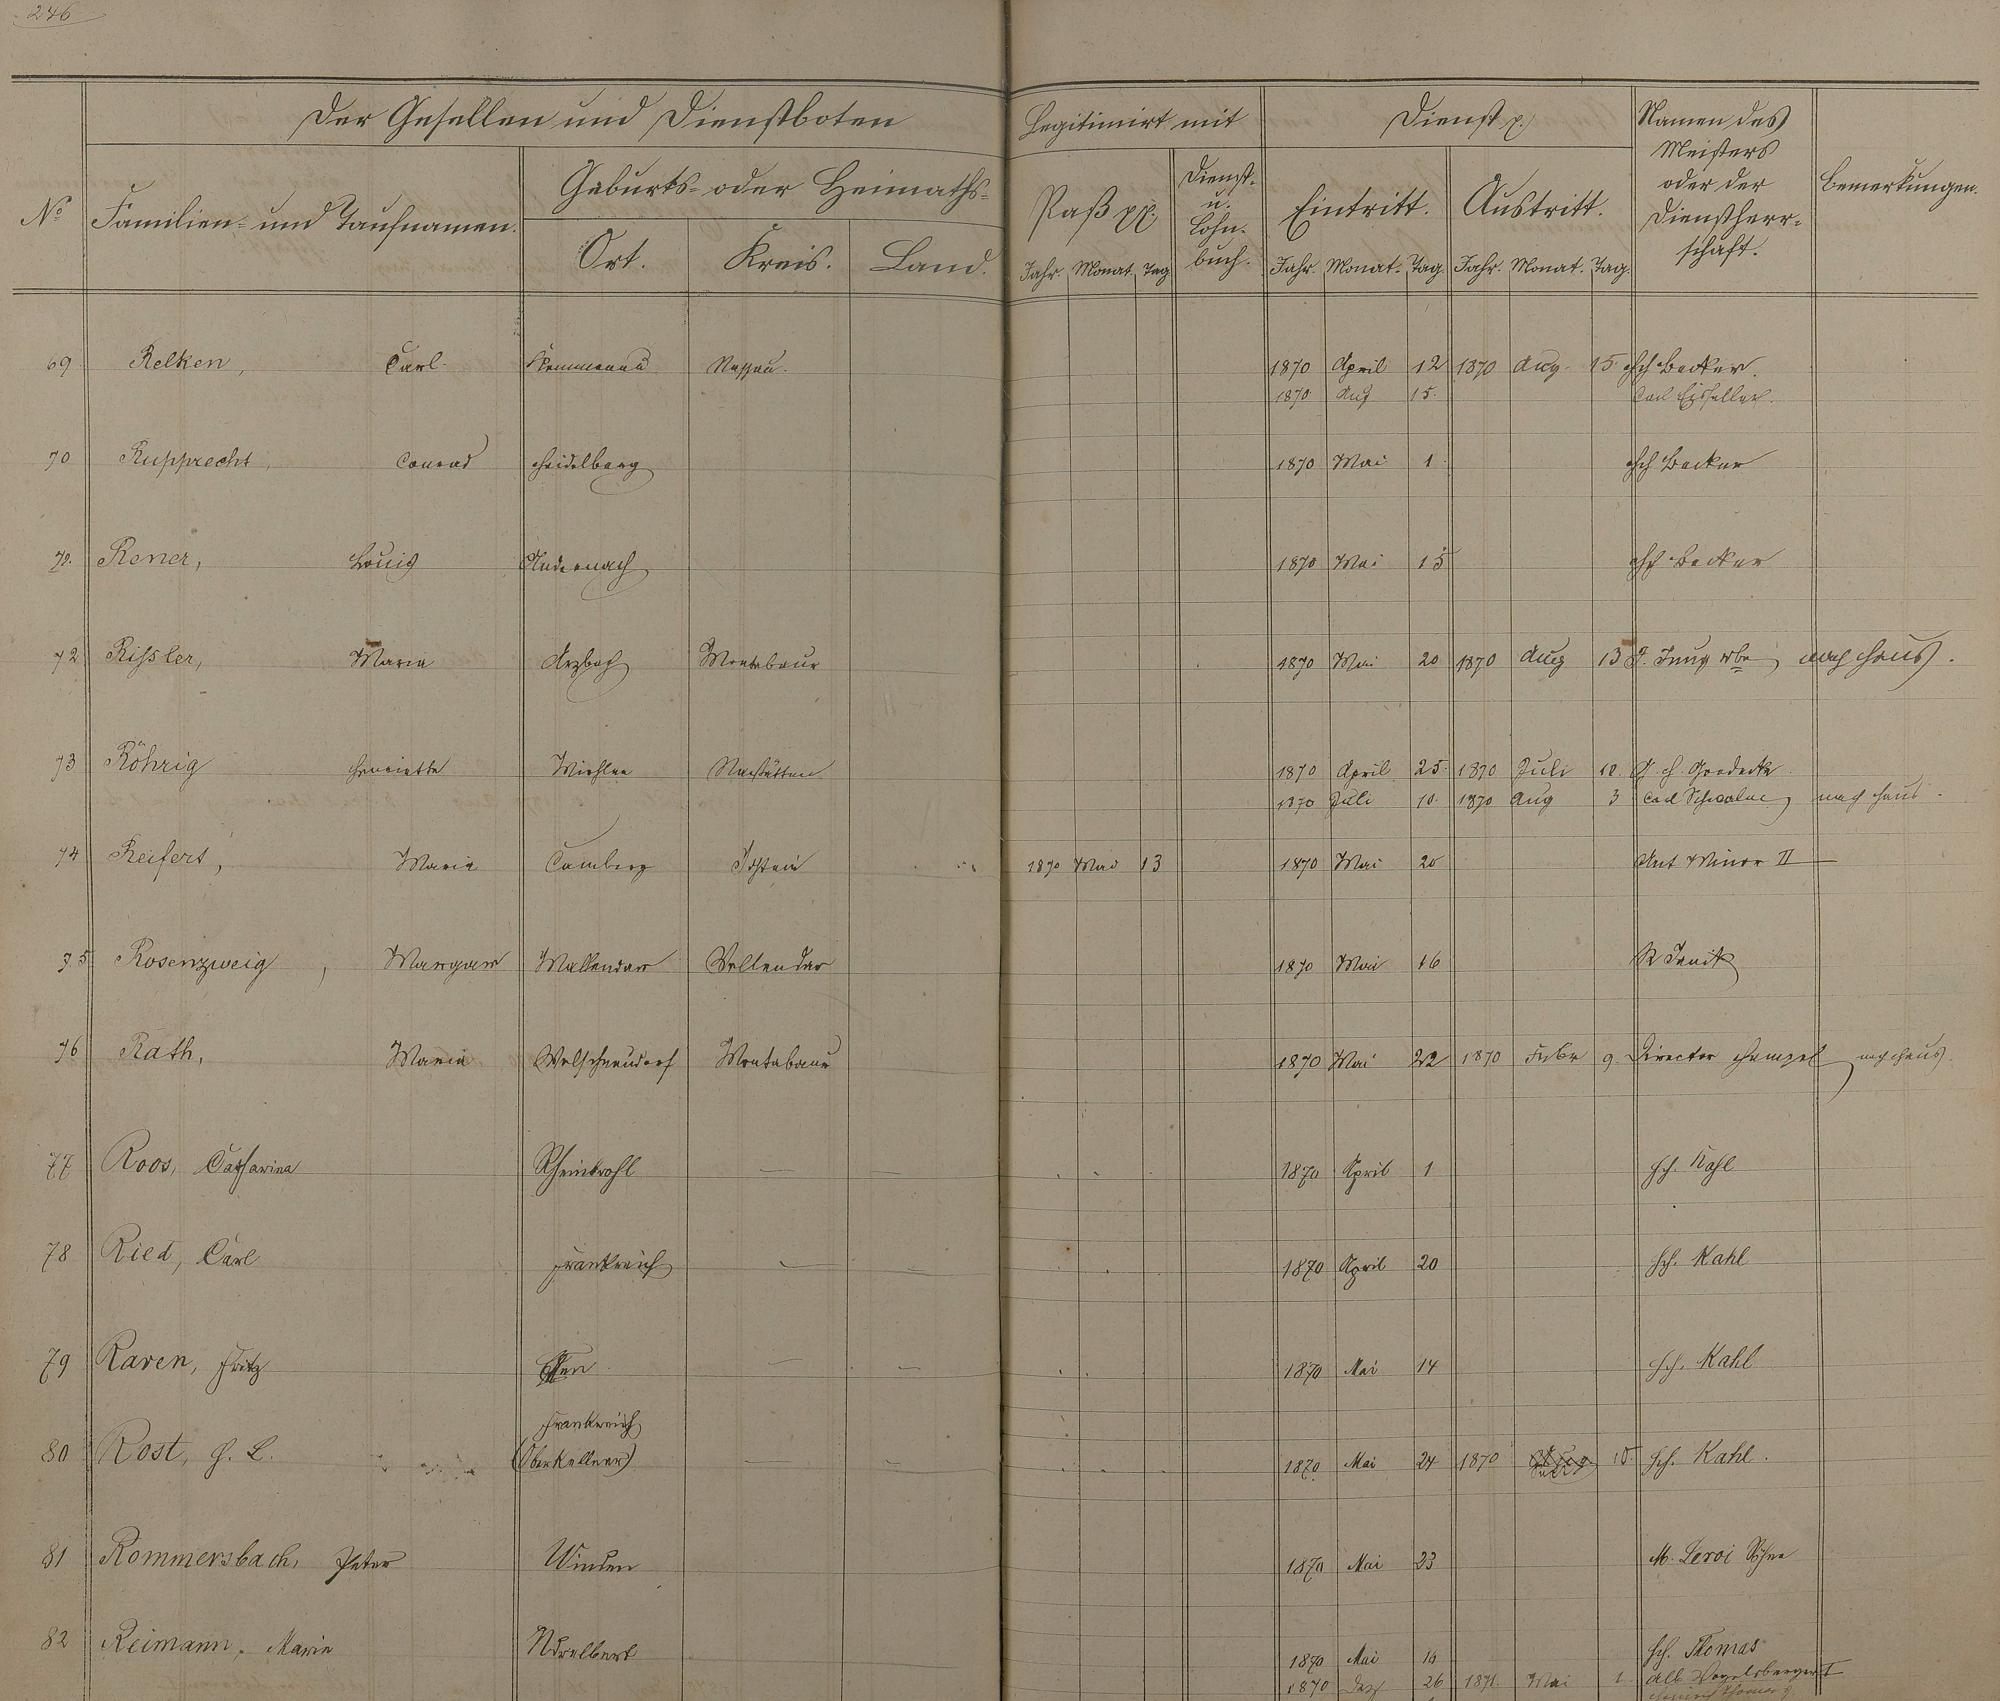 246
Der Gesellen und Dienstboten
Legitimirt mit
Dienst p.
Namen des Meisters oder der Dienstherr-schaft.
Bemerkungen.
No
Familien- und Taufnamen.
Geburts- oder Heimaths-
Ort. Kreis. Land.
Paß pp.
Dienst- u. Lohn-buch.
Eintritt. Austritt.
Jahr. Monat. Tag. Jahr. Monat. Tag. Jahr. Monat. Tag.
69 Relken, Carl Nassau. 1870 April 12 1870 Aug. 15 Hch Becker.
1870 Aug 15. Carl
70 Rupprecht, Conrad Heidelberg 1870 Mai 1 Hch Becker
Rener, Louis Andernach 1870 Mai 15 Hch Becker
72 Rissler, Maria Arzbach Montabaur 1870 Mai 20 1870 Aug 13 Jung Wbe nach Haus.
73 Röhrig Henriette Miehlen Nastätten 1870 April 25 1870 Juli 10. Goedecke
1870 Juli 10. 1870 Aug 3 Carl Schwalm nach Haus.
74 Reifert, Maria Camberg Idstein 1870 Mai 13 1870 Mai 20 Ant Minor II
75 Rosenzweig, Margar Vallendar Vallendar 1870 Mai 16
76 Rath, Maria Welschneudorf Montabaur 1870 Mai 22 1870 9. Director Hempel nach Haus.
77 Roos, Catharina Rheinbrohl — — 1870 April 1 Hch. Kahl
78 Ried, Carl Frankreich — — 1870 April 20 Hch. Kahl
79 Raven, Fritz — — 1870 Mai 14 Hch. Kahl
80 Rost, H. L. Frankreich (Oberkellner) — — 1870 Mai 24 1870 15. Hch. Kahl.
81 Rommersbach, Peter Winden 1870 Mai 23 M. Leroi Söhne
82 Reimann, Maria 1870 Mai 14 Hch. Thomas
1870 Dez 26 1871. Mai 1. Alb Vogelsberger I